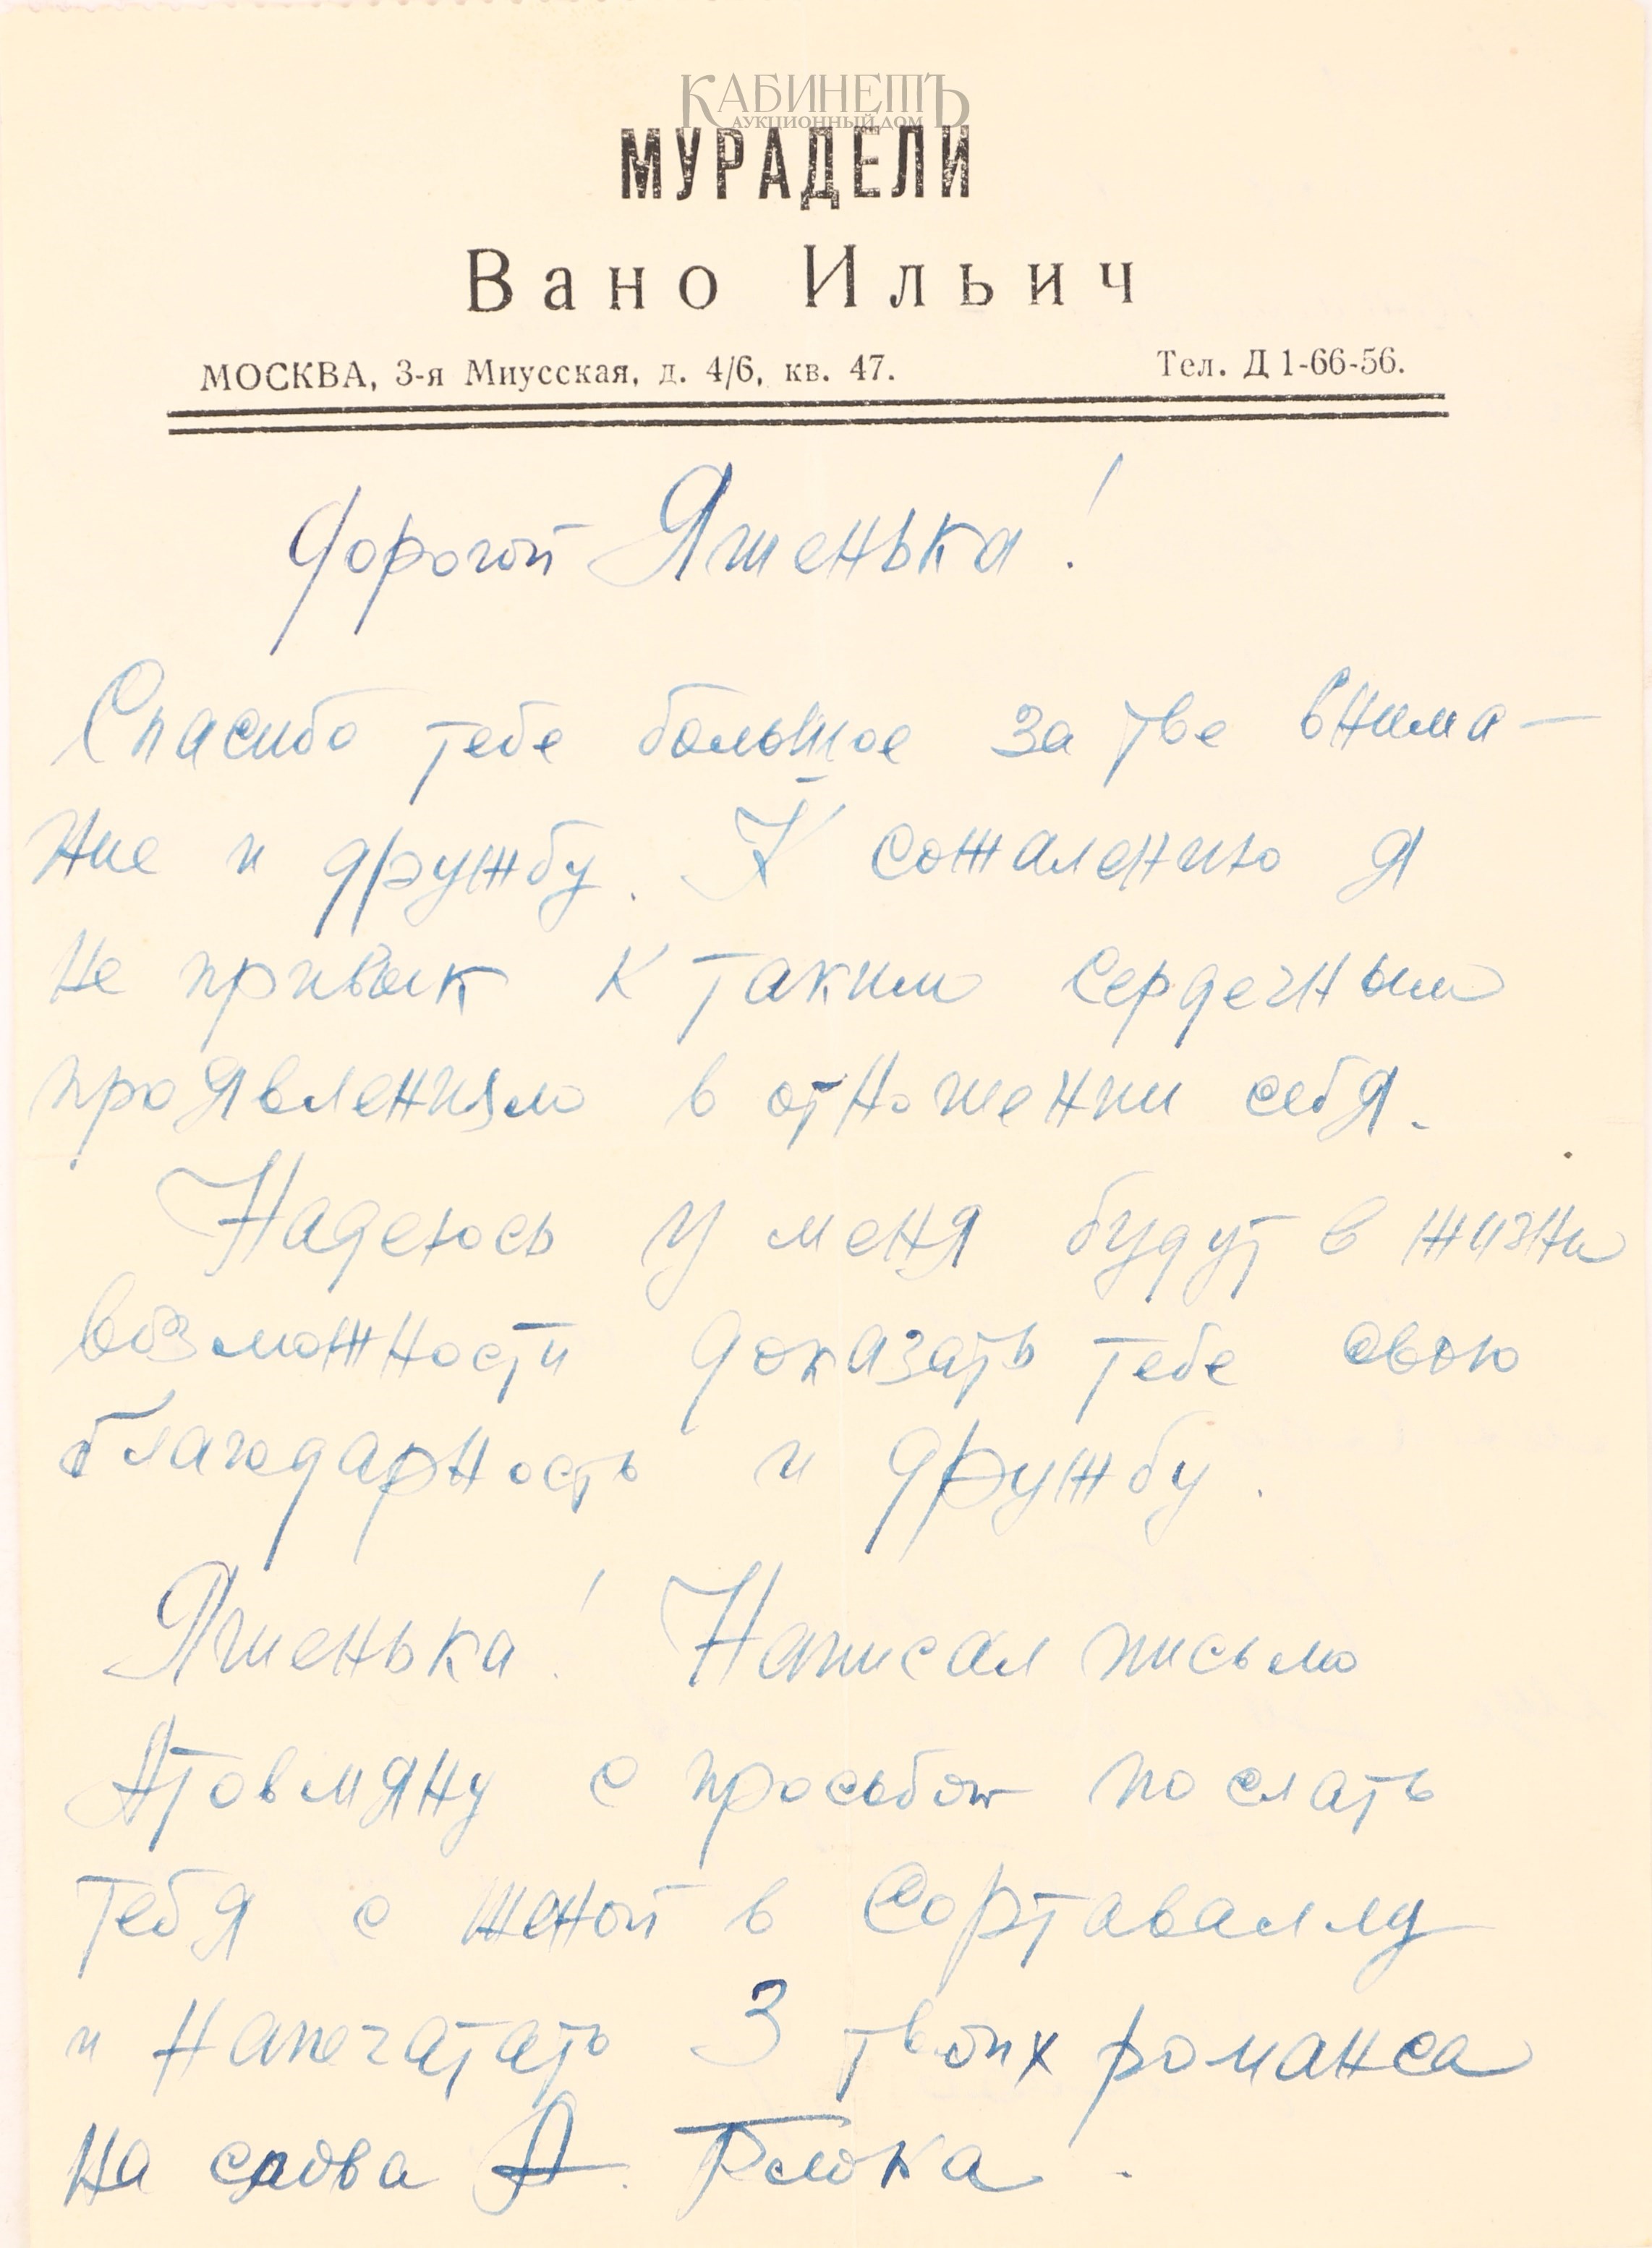 КАБИНЕТЪ
АУКЦИОННЫЙ ДОМ
МУРАДЕЛИ
Вано Ильич
МОСКВА, 3-я Миусская, д. 4/6, кв. 47. Тел. Д 1-66-56.
Дорогой Яшенька!
Спасибо тебе большое за тве внима-
ние и дружбу. К сожалению я
не привык к таким сердечным
проявлениям в отношении себя.
Надеюсь у меня будут в жизни
возможности доказать тебе свою
благодарность и дружбу.
Яшенька! Написал письмо
Атовмяну с просьбой послать
тебя с женой в Сортаваллу
и напечатать 3 твоих романса
на слова А. Блока.